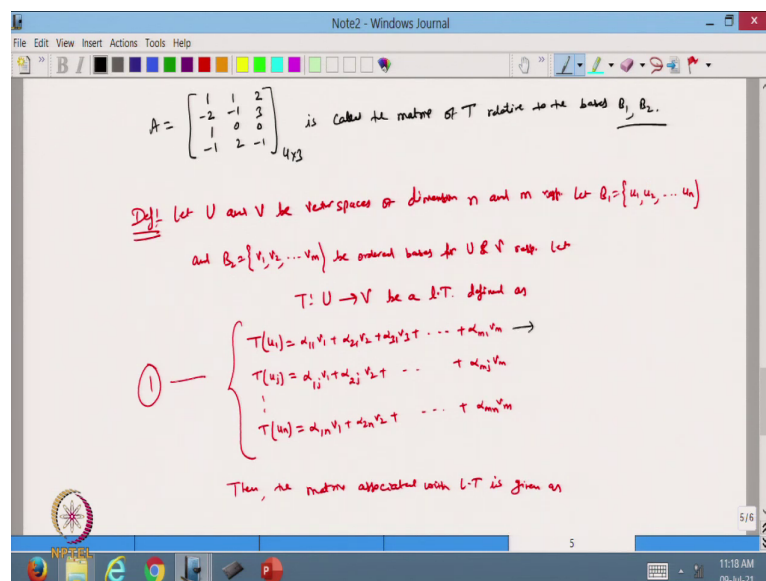 Note2 - Windows Journal
File Edit View Insert Actions Tools Help
B I
A = [1 1 2
-2 -1 3
1 0 0
-1 2 -1]4x3 is called the matrix of T relative to the bases B1, B2.
Def! Let U and V be vector spaces of dimension n and m resp. Let B1={u1, u2, ... un}
and B2={v1, v2, ... vm} be ordered bases for U & V resp. Let
T: U → V be a l.T. defined as
T(u1) = α11 v1 + α21 v2 + α31 v3 + ... + αm1 vm →
T(uj) = α1j v1 + α2j v2 + ... + αmj vm
⋮
① — T(un) = α1n v1 + α2n v2 + ... + αmn vm
Then, the matrix associated with L.T is given as
5/6
5
NPTEL
11:18 AM
09-Jul-21